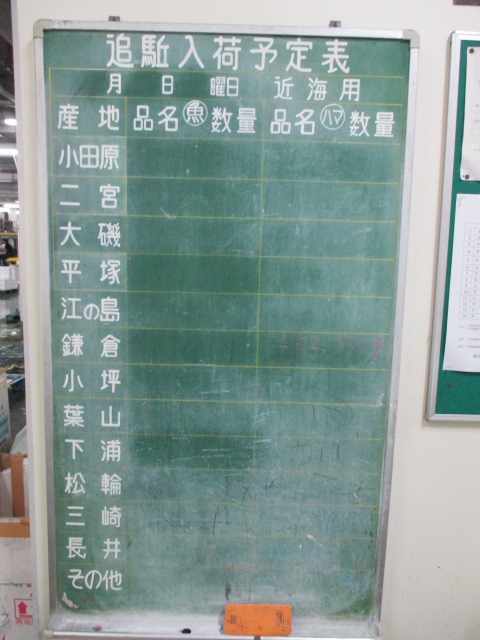 追駈入荷予定表
月 日 曜日 近海用
産地 品名 ㊊魚 数量 品名 ハマ 数量
小田原
二宮
大磯
平塚
江の島
鎌倉
小坪
葉山
下浦
松輪
三崎
長井
その他